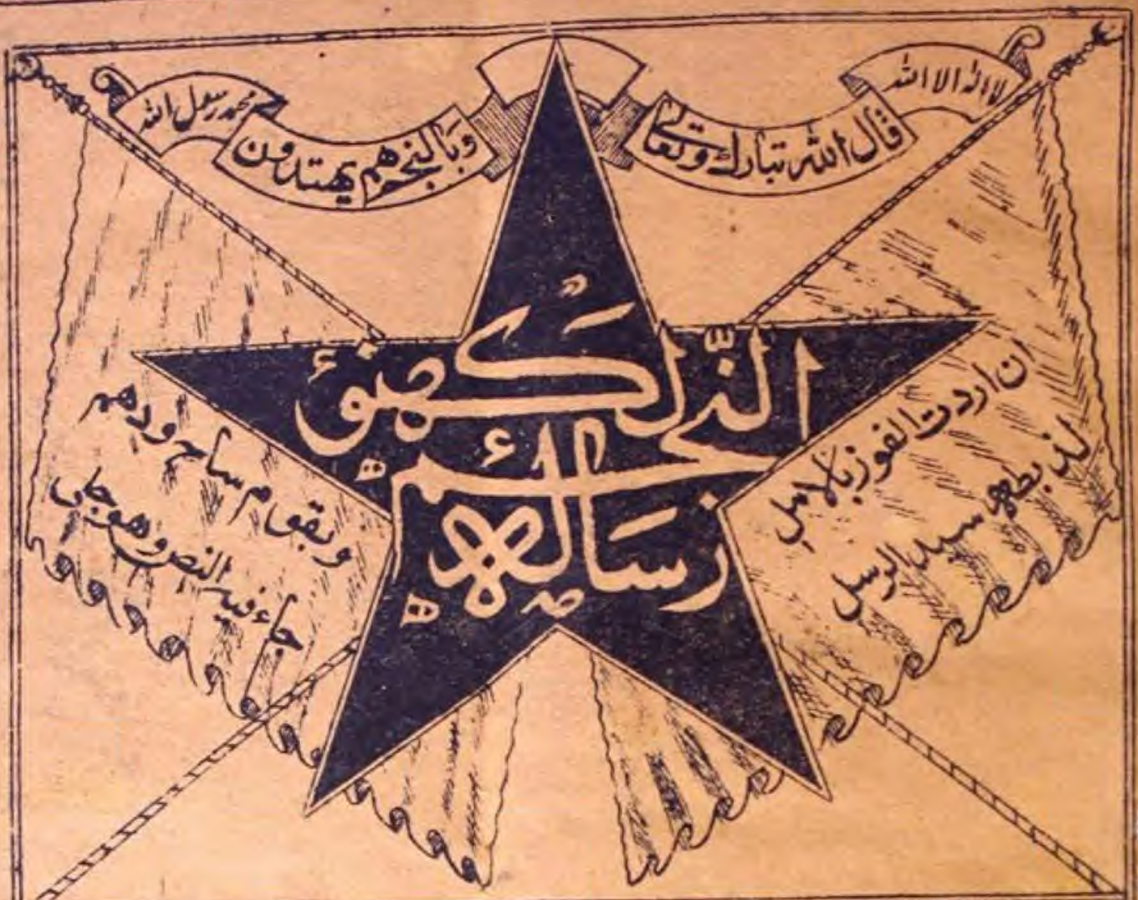 لا اله الا الله
قال الله تبارك وتعالى
وبالنجم هم يهتدون
محمد رسول الله
النّجم لکھنؤ
رسالہ
ان اردت الفوز بالامل
لذ بطه سيد الرسل
وبقوم ودهم
جاء فيه النص وهو جلي